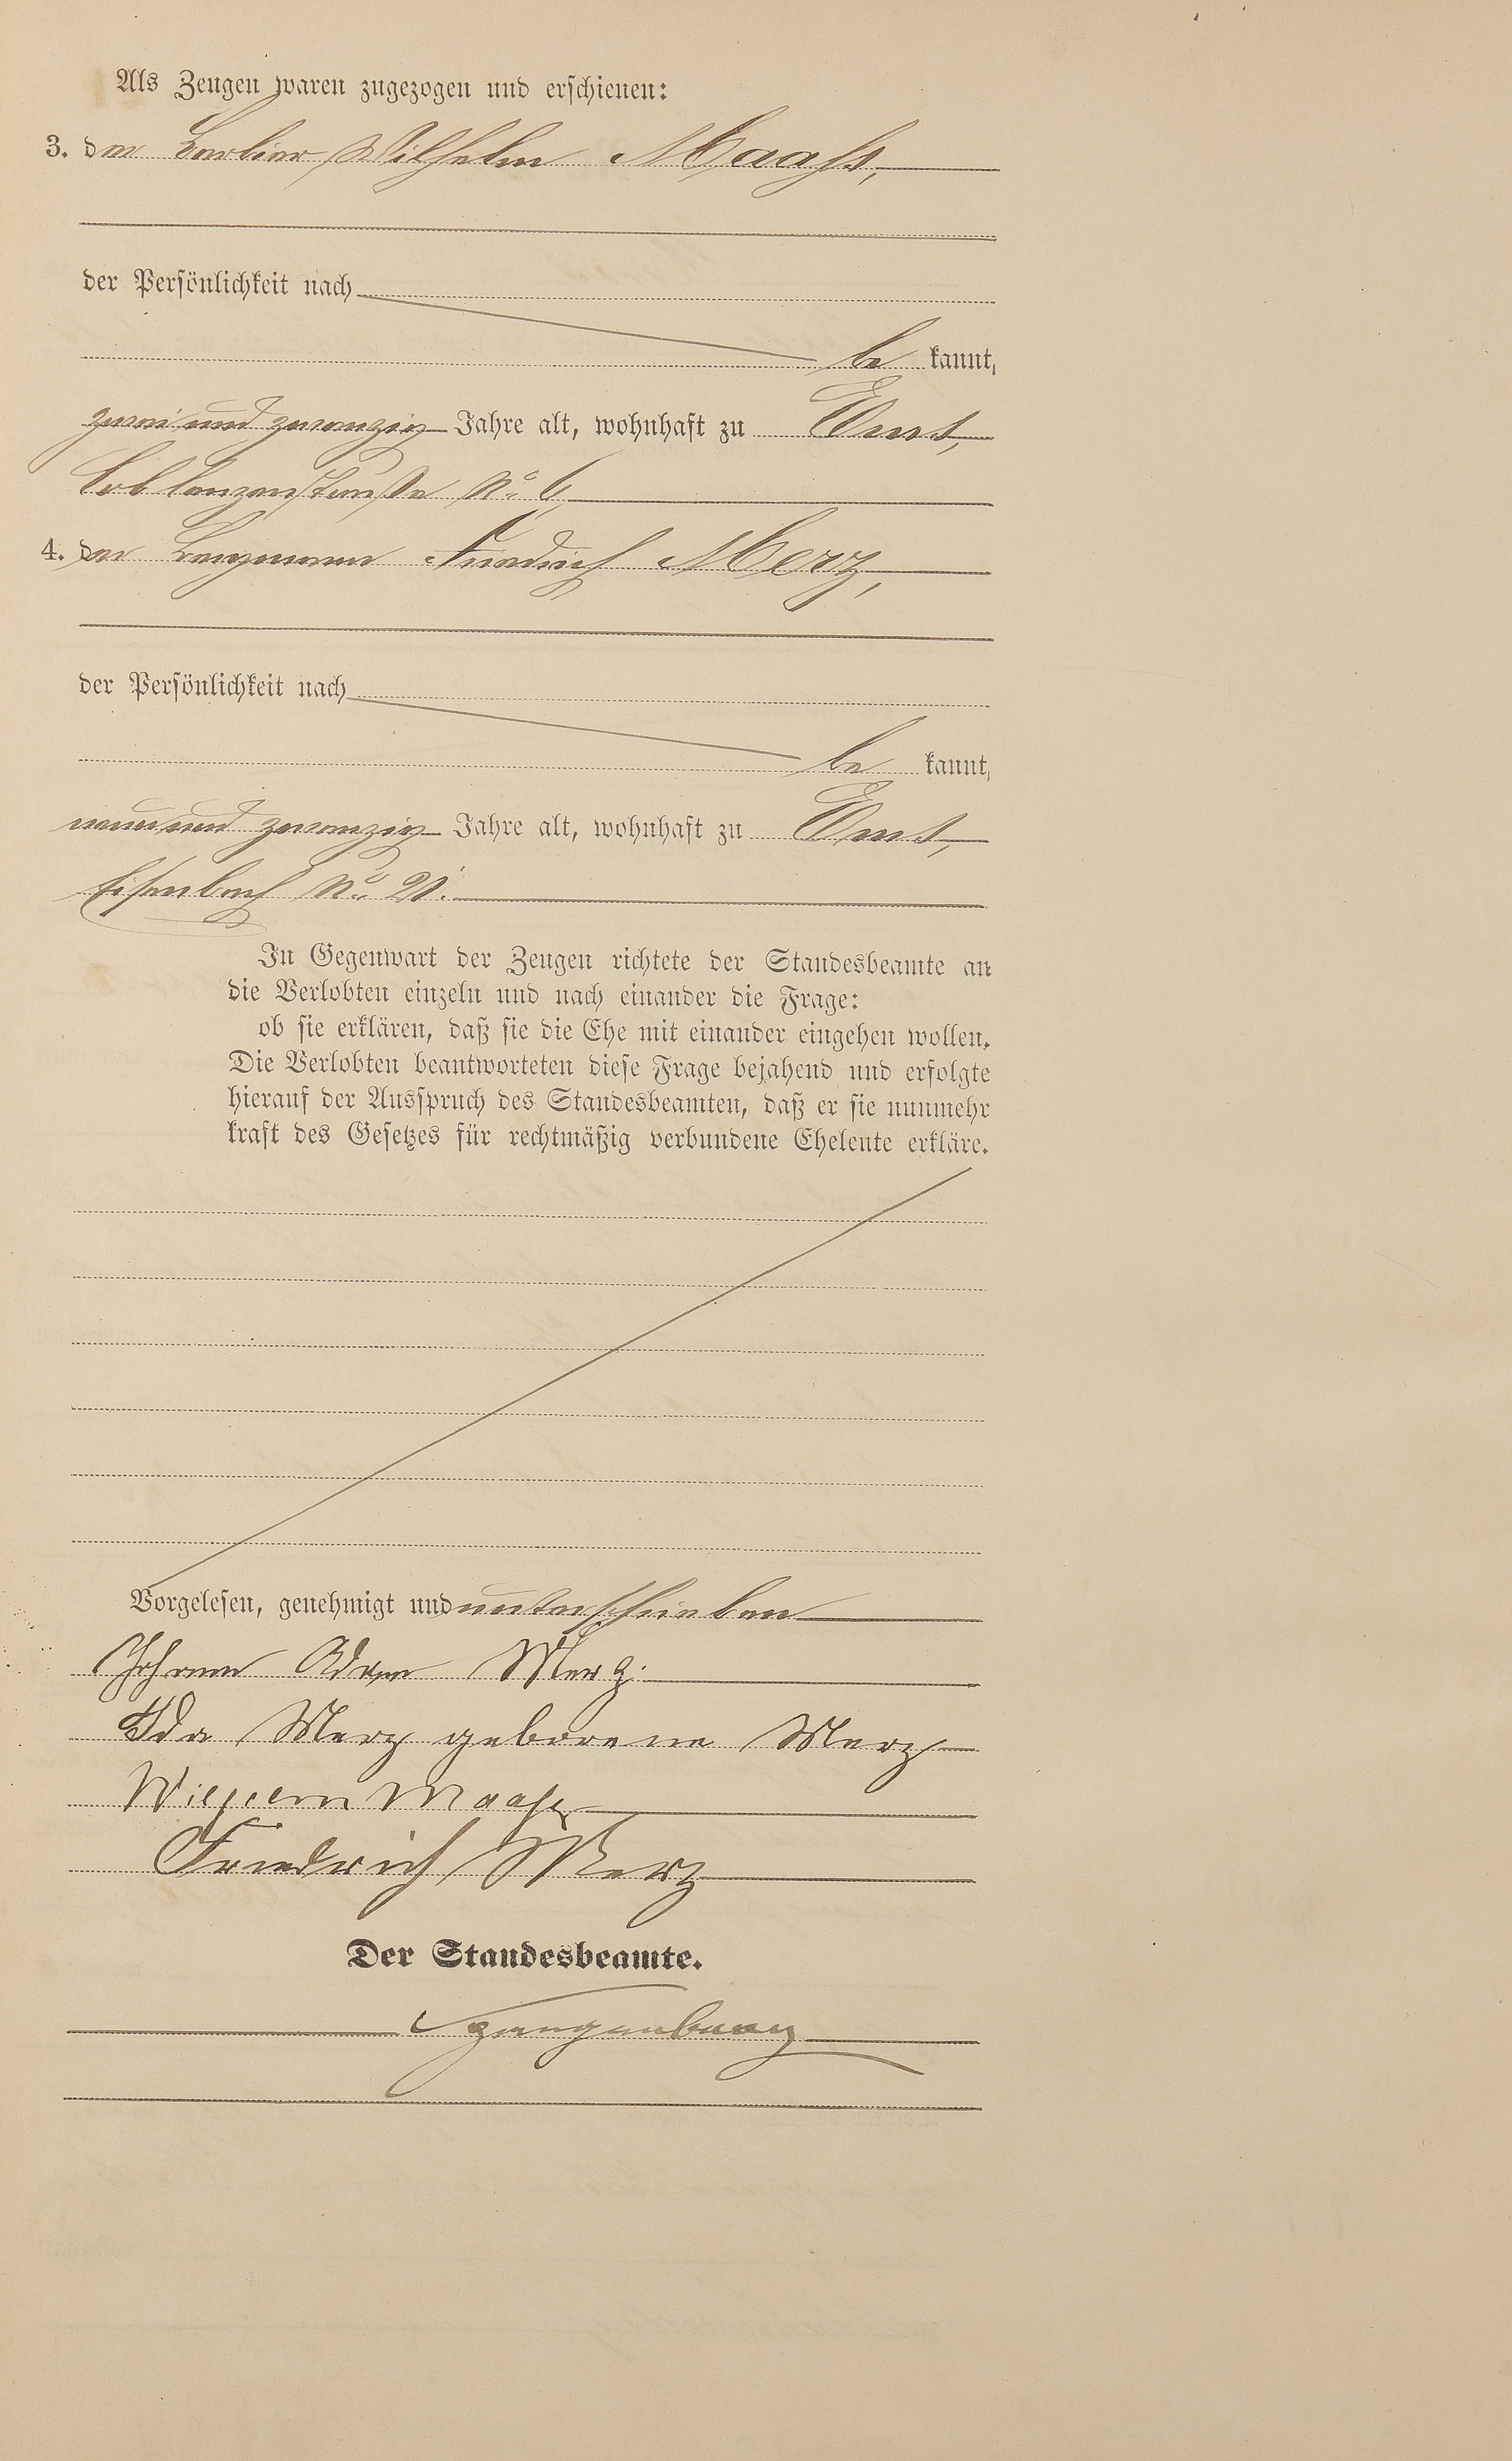 Als Zeugen waren zugezogen und erschienen:
3. der Barbier Wilhelm Maaß,
der Persönlichkeit nach
be kannt,
zwei und zwanzig Jahre alt, wohnhaft zu Ems,
Coblenzerstraße No. 6,
4. der Bergmann Friedrich Merz,
der Persönlichkeit nach
be kannt,
neunund zwanzig Jahre alt, wohnhaft zu Ems,
Eisenbach No. 21.
In Gegenwart der Zeugen richtete der Standesbeamte an
die Verlobten einzeln und nach einander die Frage:
ob sie erklären, daß sie die Ehe mit einander eingehen wollen.
Die Verlobten beantworteten diese Frage bejahend und erfolgte
hierauf der Ausspruch des Standesbeamten, daß er sie nunmehr
kraft des Gesetzes für rechtmäßig verbundene Eheleute erkläre.
Vorgelesen, genehmigt und unterschrieben
Johann Adam Merz.
Ida Merz geborene Merz
Wilhelm Maaß
Friedrich Merz
Der Standesbeamte.